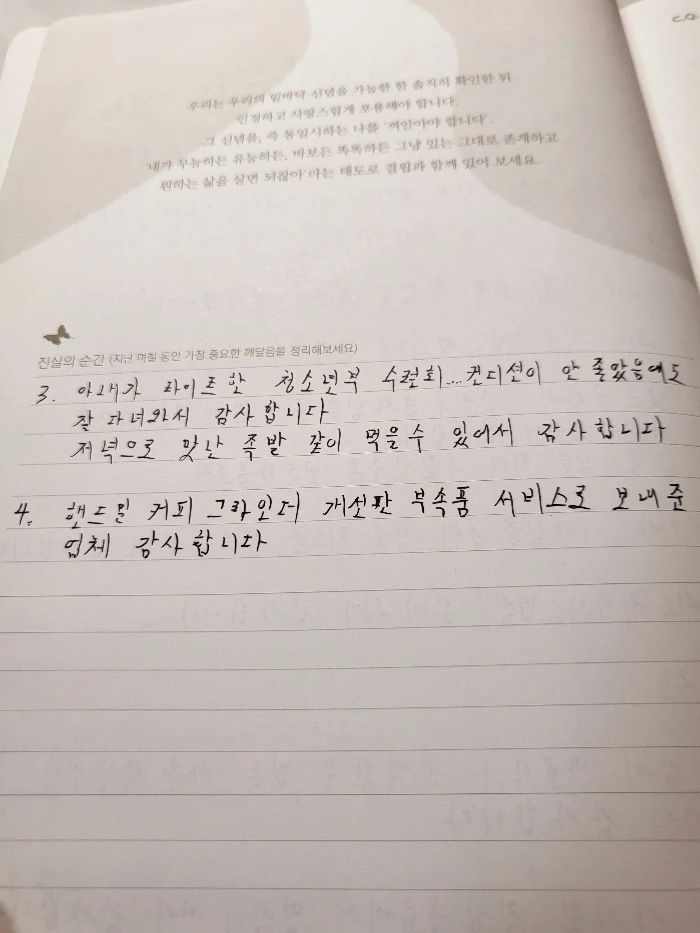 우리는 우리의 밑바닥 신념을 가능한 한 솔직히 확인한 뒤
인정하고 사랑스럽게 포용해야 합니다.
그 신념을, 즉 동일시하는 나를 '껴안아야 합니다'.
'내가 무능하든 유능하든, 바보든 똑똑하든 그냥 있는 그대로 존재하고
원하는 삶을 살면 되잖아'라는 태도로 결핍과 함께 있어 보세요.
진실의 순간 (지난 며칠 동안 가장 중요한 깨달음을 정리해보세요)
3. 아내가 파이프한 청소년부 수련회.... 컨디션이 안 좋았음에도
잘 다녀와서 감사합니다
저녁으로 맛난 족발 같이 먹을수 있어서 감사합니다
4. 핸드밀 커피 그라인더 개선판 부속품 서비스로 보내준
업체 감사합니다